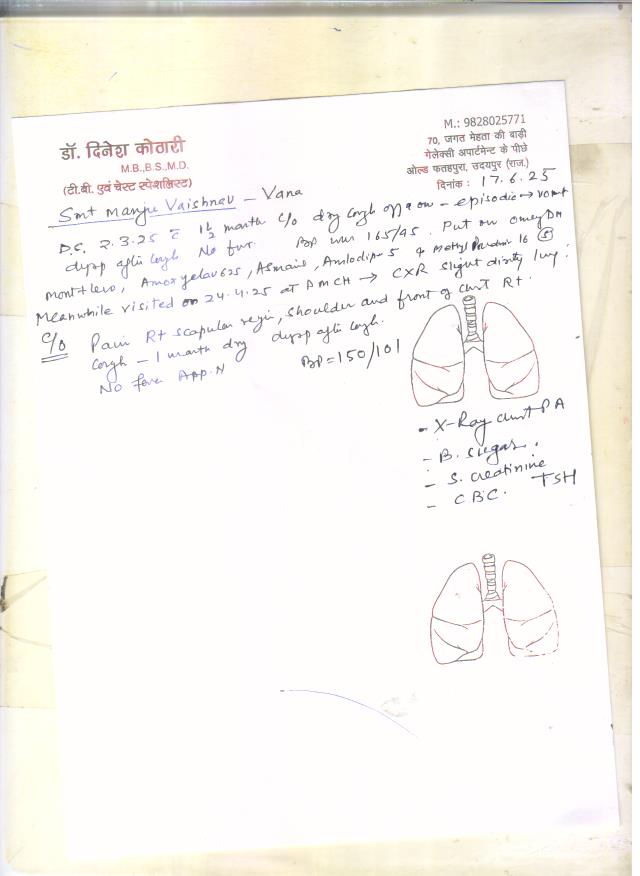 डॉ. दिनेश कोठारी
M.B.,B.S.,M.D.
(टी.बी. एवं चेस्ट स्पेशलिस्ट)
M.: 9828025771
70, जगत मेहता की बाड़ी
गेलेक्सी अपार्टमेन्ट के पीछे
ओल्ड फतहपुरा, उदयपुर (राज.)
दिनांक : 17.6.25
Smt Manju Vaishnav - Vana
D.S. 2.3.25 c̄ 1½ month c/o dry cough off & on - episodic → vomit
dysp after cough No fever. BP was 165/95. Put on Omez DM
mont+levo, Amoxyclav 625, Amlodipin 5 & Methyl 16
Meanwhile visited on 24.4.25 at → CXR slight dirty lung.
C/o Pain Rt scapular region, shoulder and front of chest Rt.
cough - 1 month dry dysp after cough.
No fever App. N BP = 150/101
- X-Ray chest PA
- B. Sugar.
- S. creatinine
- CBC. TSH